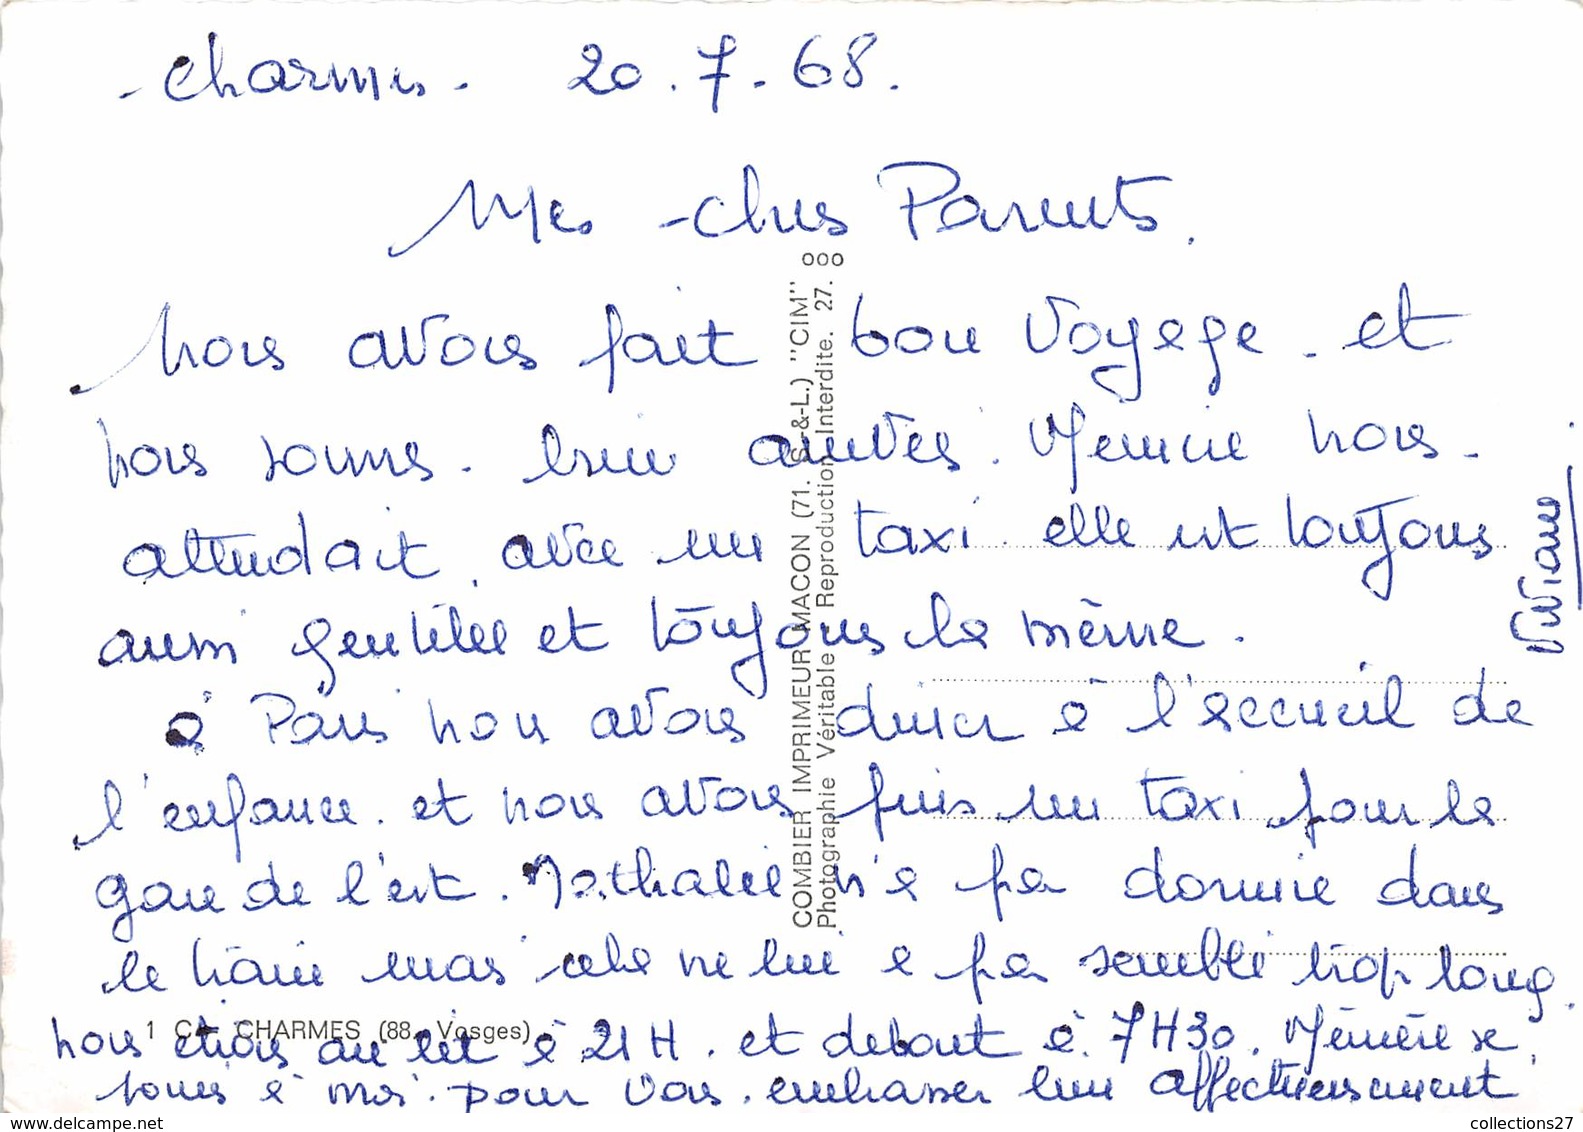 - Charmes - 20.7.68.
Mes chers Parents.
Nous avons fait bon voyage. et
nous sommes. bien arrivées. Mémine nous.
attendait. avec un taxi. elle est toujours
aussi gentille et toujours la même.
à Paris nous avons diner à l'accueil de
l'enfance. et nous avons pris un taxi pour la
gare de l'est. Nathalie n'a pas dormie dans
le train mais cela ne lui a pas semblé trop long.
nous etions au lit à 21H. et debout à 7H30. se
à moi. pour vous. embrasser bien affectueusement
Viviane
COMBIER IMPRIMEUR MACON (71. S.-&-L.) "CIM"
Photographie Véritable Reproduction Interdite. 27.
1 C CHARMES (88. Vosges)
collections27